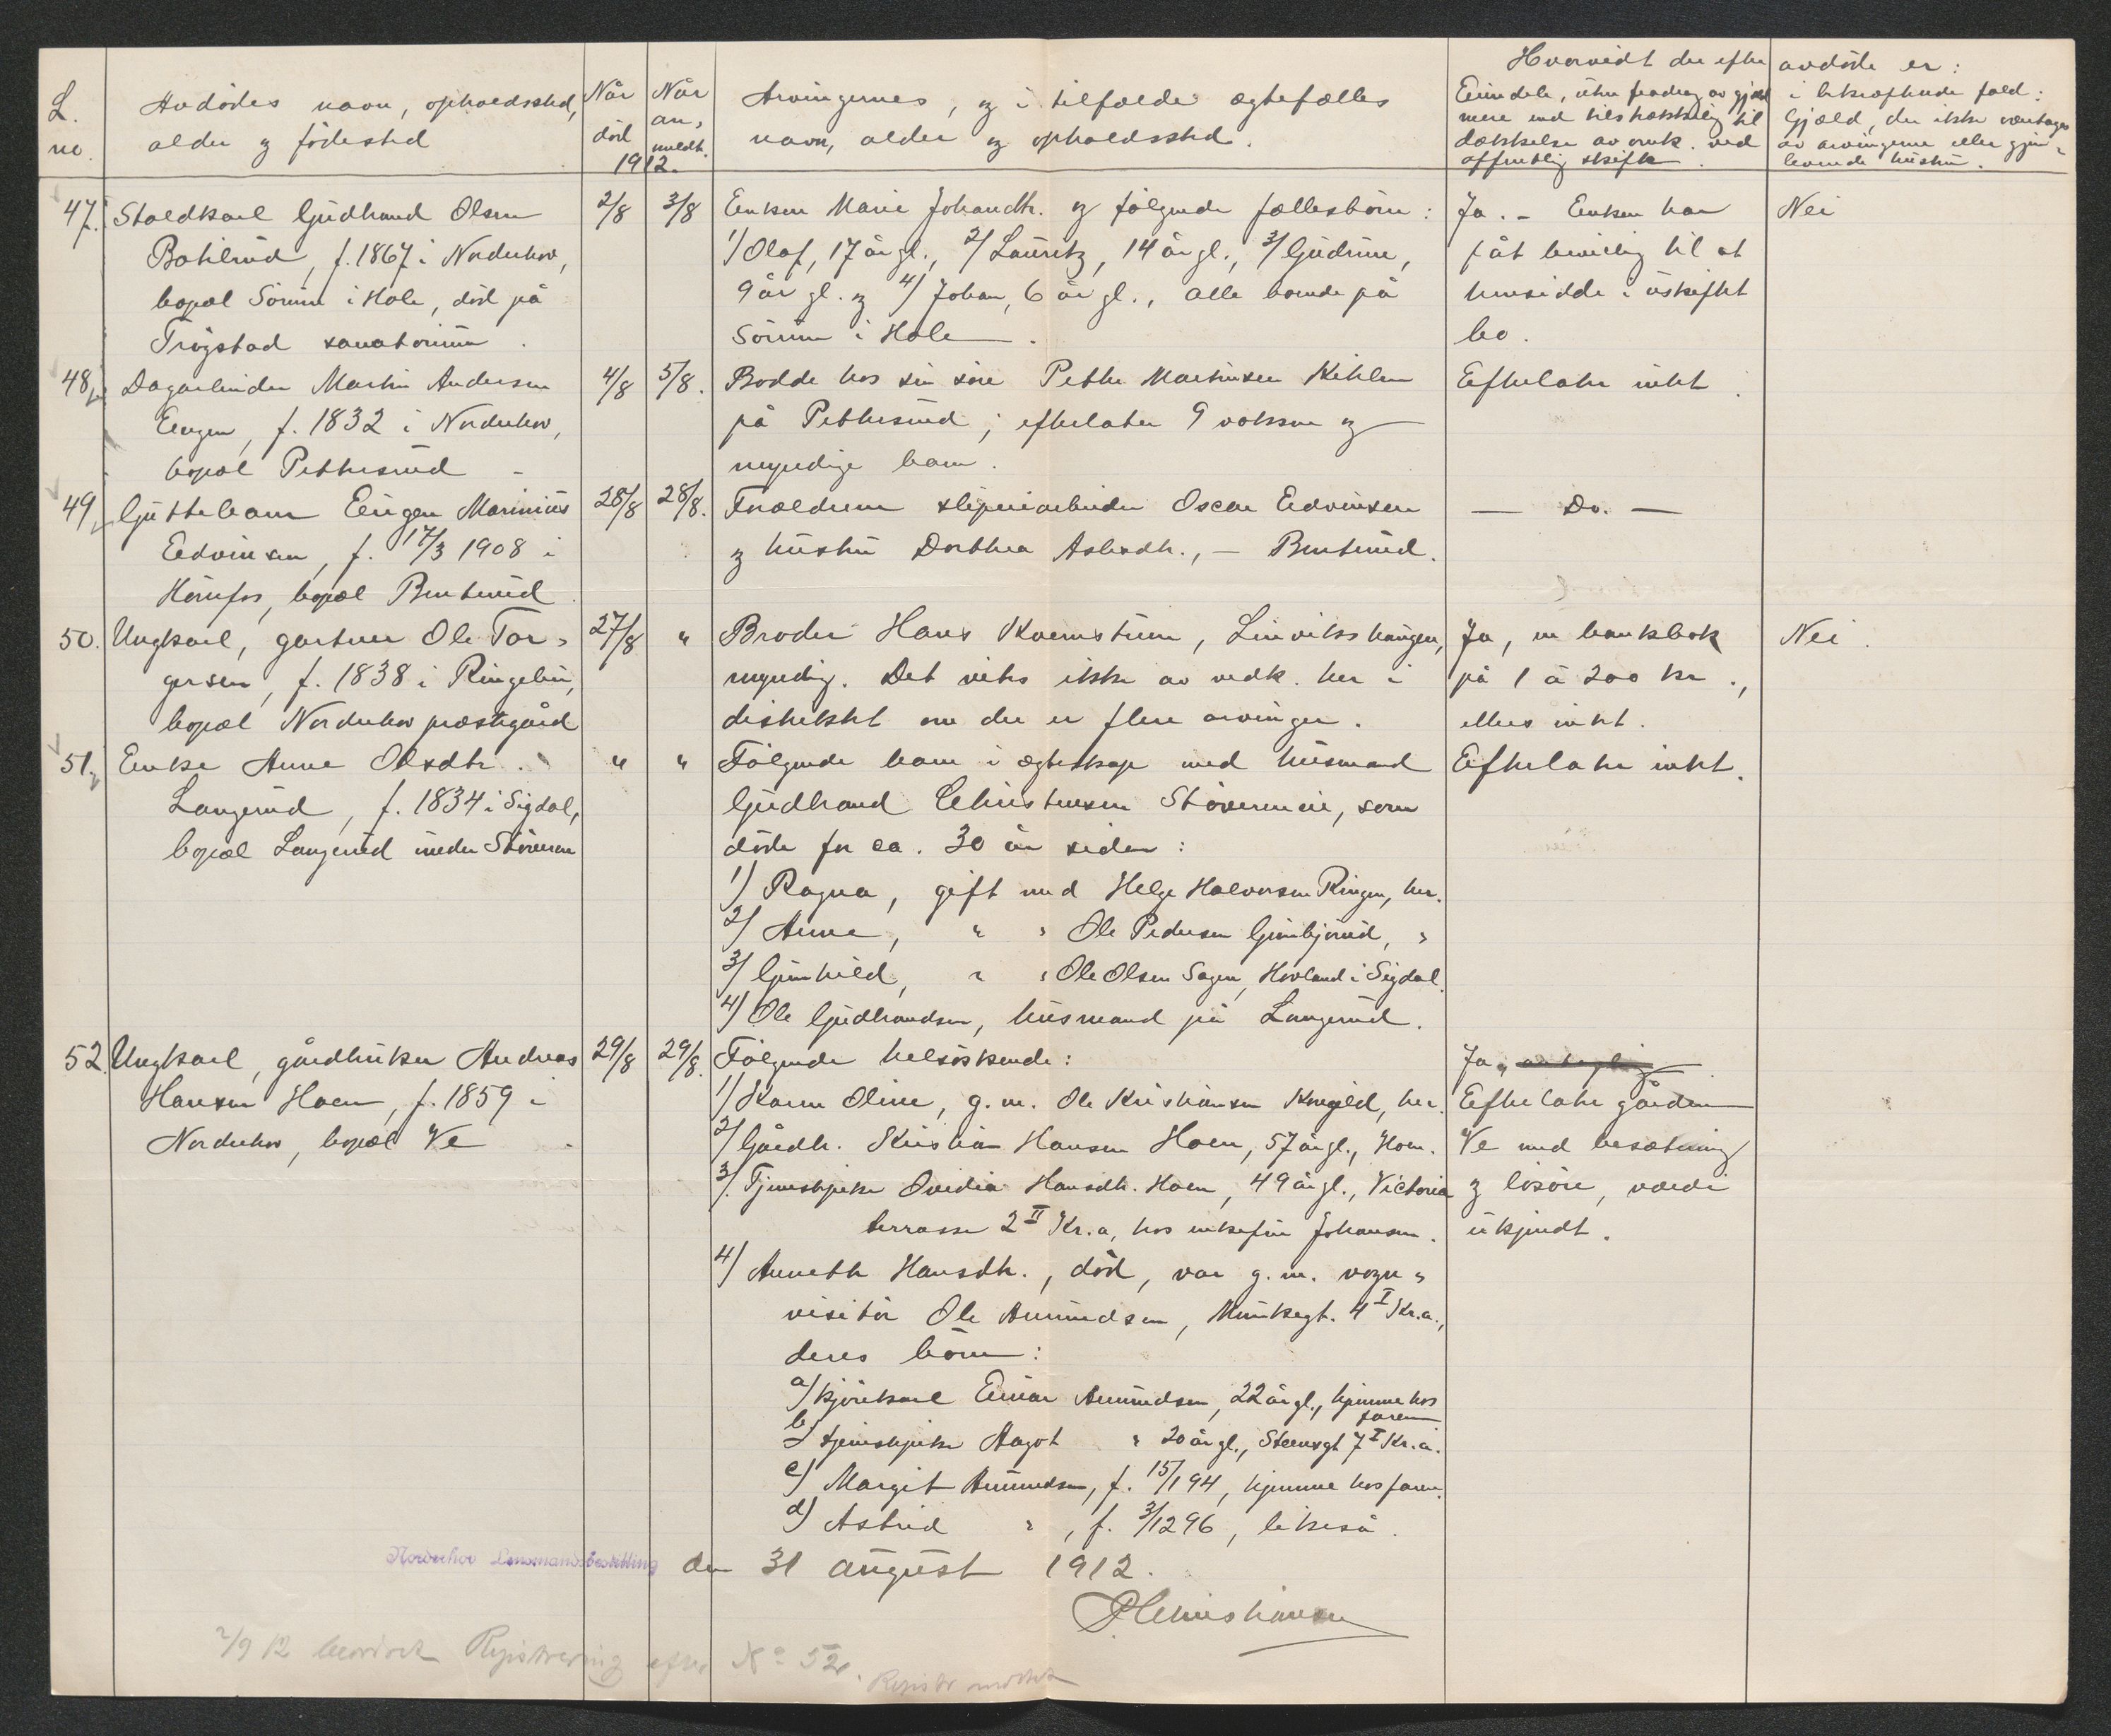 Hvorvidt der efter avdöde er:
L. no.
Avdödes navn, opholdssted,
alder og födested
Når död
Når an-
meldt.
1912.
Arvingernes, og i tilfælde ægtefælles
navn, alder og opholdssted.
Eiendele, uten fradrag av gjæld
mere end tilstrækkelig til
dækkelse av omk. ved
offentlig skifte.
i bekræftende fald:
Gjæld, der ikke overtages
av arvingerne eller gjen-
levende hustru.
47. Staldkarl Gudbrand Olsen 2/8 3/8 Enken Marie Johandtr. og følgende fællesbörn: Ja. - Enken har Nei
Botilrud, f. 1867 i Norderhov, 1/ Olaf, 17 år gl., 2/ Lauritz, 14 år gl., 3/ Gudrun, fåt bevilling til at
bopæl Sörum i Hole, död på 9 år gl. og 4/ Johan, 6 år gl., alle boende på hensidde i uskiftet
Trögstad sanatorium. Sörum i Hole. bo.
48. Dagarbeider Martin Andersen 4/8 5/8. Bodde hos sin sön Petter Martinsen Kihlen Efterlater intet.
Engen, f. 1832 i Norderhov, på Pettersrud; efterlater 9 voksne og
bopæl Pettersrud - myndige barn.
49. Guttebarn Eugen Marinius 28/8 28/8. Forældrene sliperiarbeider Oscar Edvinsen — Do. —
Edvinsen, f. 17/3 1908 i og hustru Dorthea Aslesdtr., - Benterud.
Hönefos, bopæl Benterud.
50. Ungkarl, gartner Ole Tor- 27/8 " Broder Hans Kvernstuen, Linvikshaugen, Ja, en bankbok Nei.
gersen, f. 1838 i Ringebu, myndig. Det vites ikke av vedk. her i på 1 à 200 kr.,
bopæl Norderhov prestegård distriktet om der er flere arvinger. ellers intet.
51. Enke Anne Olsdtr. " " Fölgende barn i ægteskap med husmand Efterlater intet.
Langerud, f. 1834 i Sigdal, Gudbrand Christensen Stöverneie, som
bopæl Langerud under Stöveren döde for ca. 30 år siden:
1) Ragna, gift med Helge Halvorsen Ringen, her.
2/ Anne, " " Ole Pedersen Gunbjörud, "
3/ Gunhild, " " Ole Olsen Sagen, Hovland i Sigdal.
4) Ole Gudbrandsen, husmand på Langerud.
52. Ungkarl, gårdbruker Andreas 29/8 29/8. Fölgende helsöskende: Ja,
Hansen Hoen, f. 1859 i 1/ Karen Oline, g.m. Ole Kristiansen, her. Efterlater gården
Norderhov, bopæl Ve 2/ Gårdbr. Kristian Hansen Hoen, 57 år gl., Hoen. Ve med besætning
3/. Tjenestepike Ovidia Hansdtr. Hoen, 49 år gl., Victoria og lösöre, værdi
terrasse 2 II Kr.a, hos enkefru Johansen. ukjendt.
4/ Annette Hansdtr., död, var g.m. vogn-
visitör Ole Amundsen, Munkegt. 4 I Kr.a.,
deres börn:
a) kjörekarl Einar Amundsen, 22 år gl., hjemme hos
faren
b) tjenestepike Aagot " 20 år gl., Steensgt 7 I Kr.a.
c) Margit Amundsen, f. 15/1 94, hjemme hos faren.
d) Astrid " , f. 3/12 96, likeså.
Norderhov Lensmandsbestilling den 31 august 1912.
P Christiansen
2/9 12 beordret Registrering efter No 52.
Registr mottat